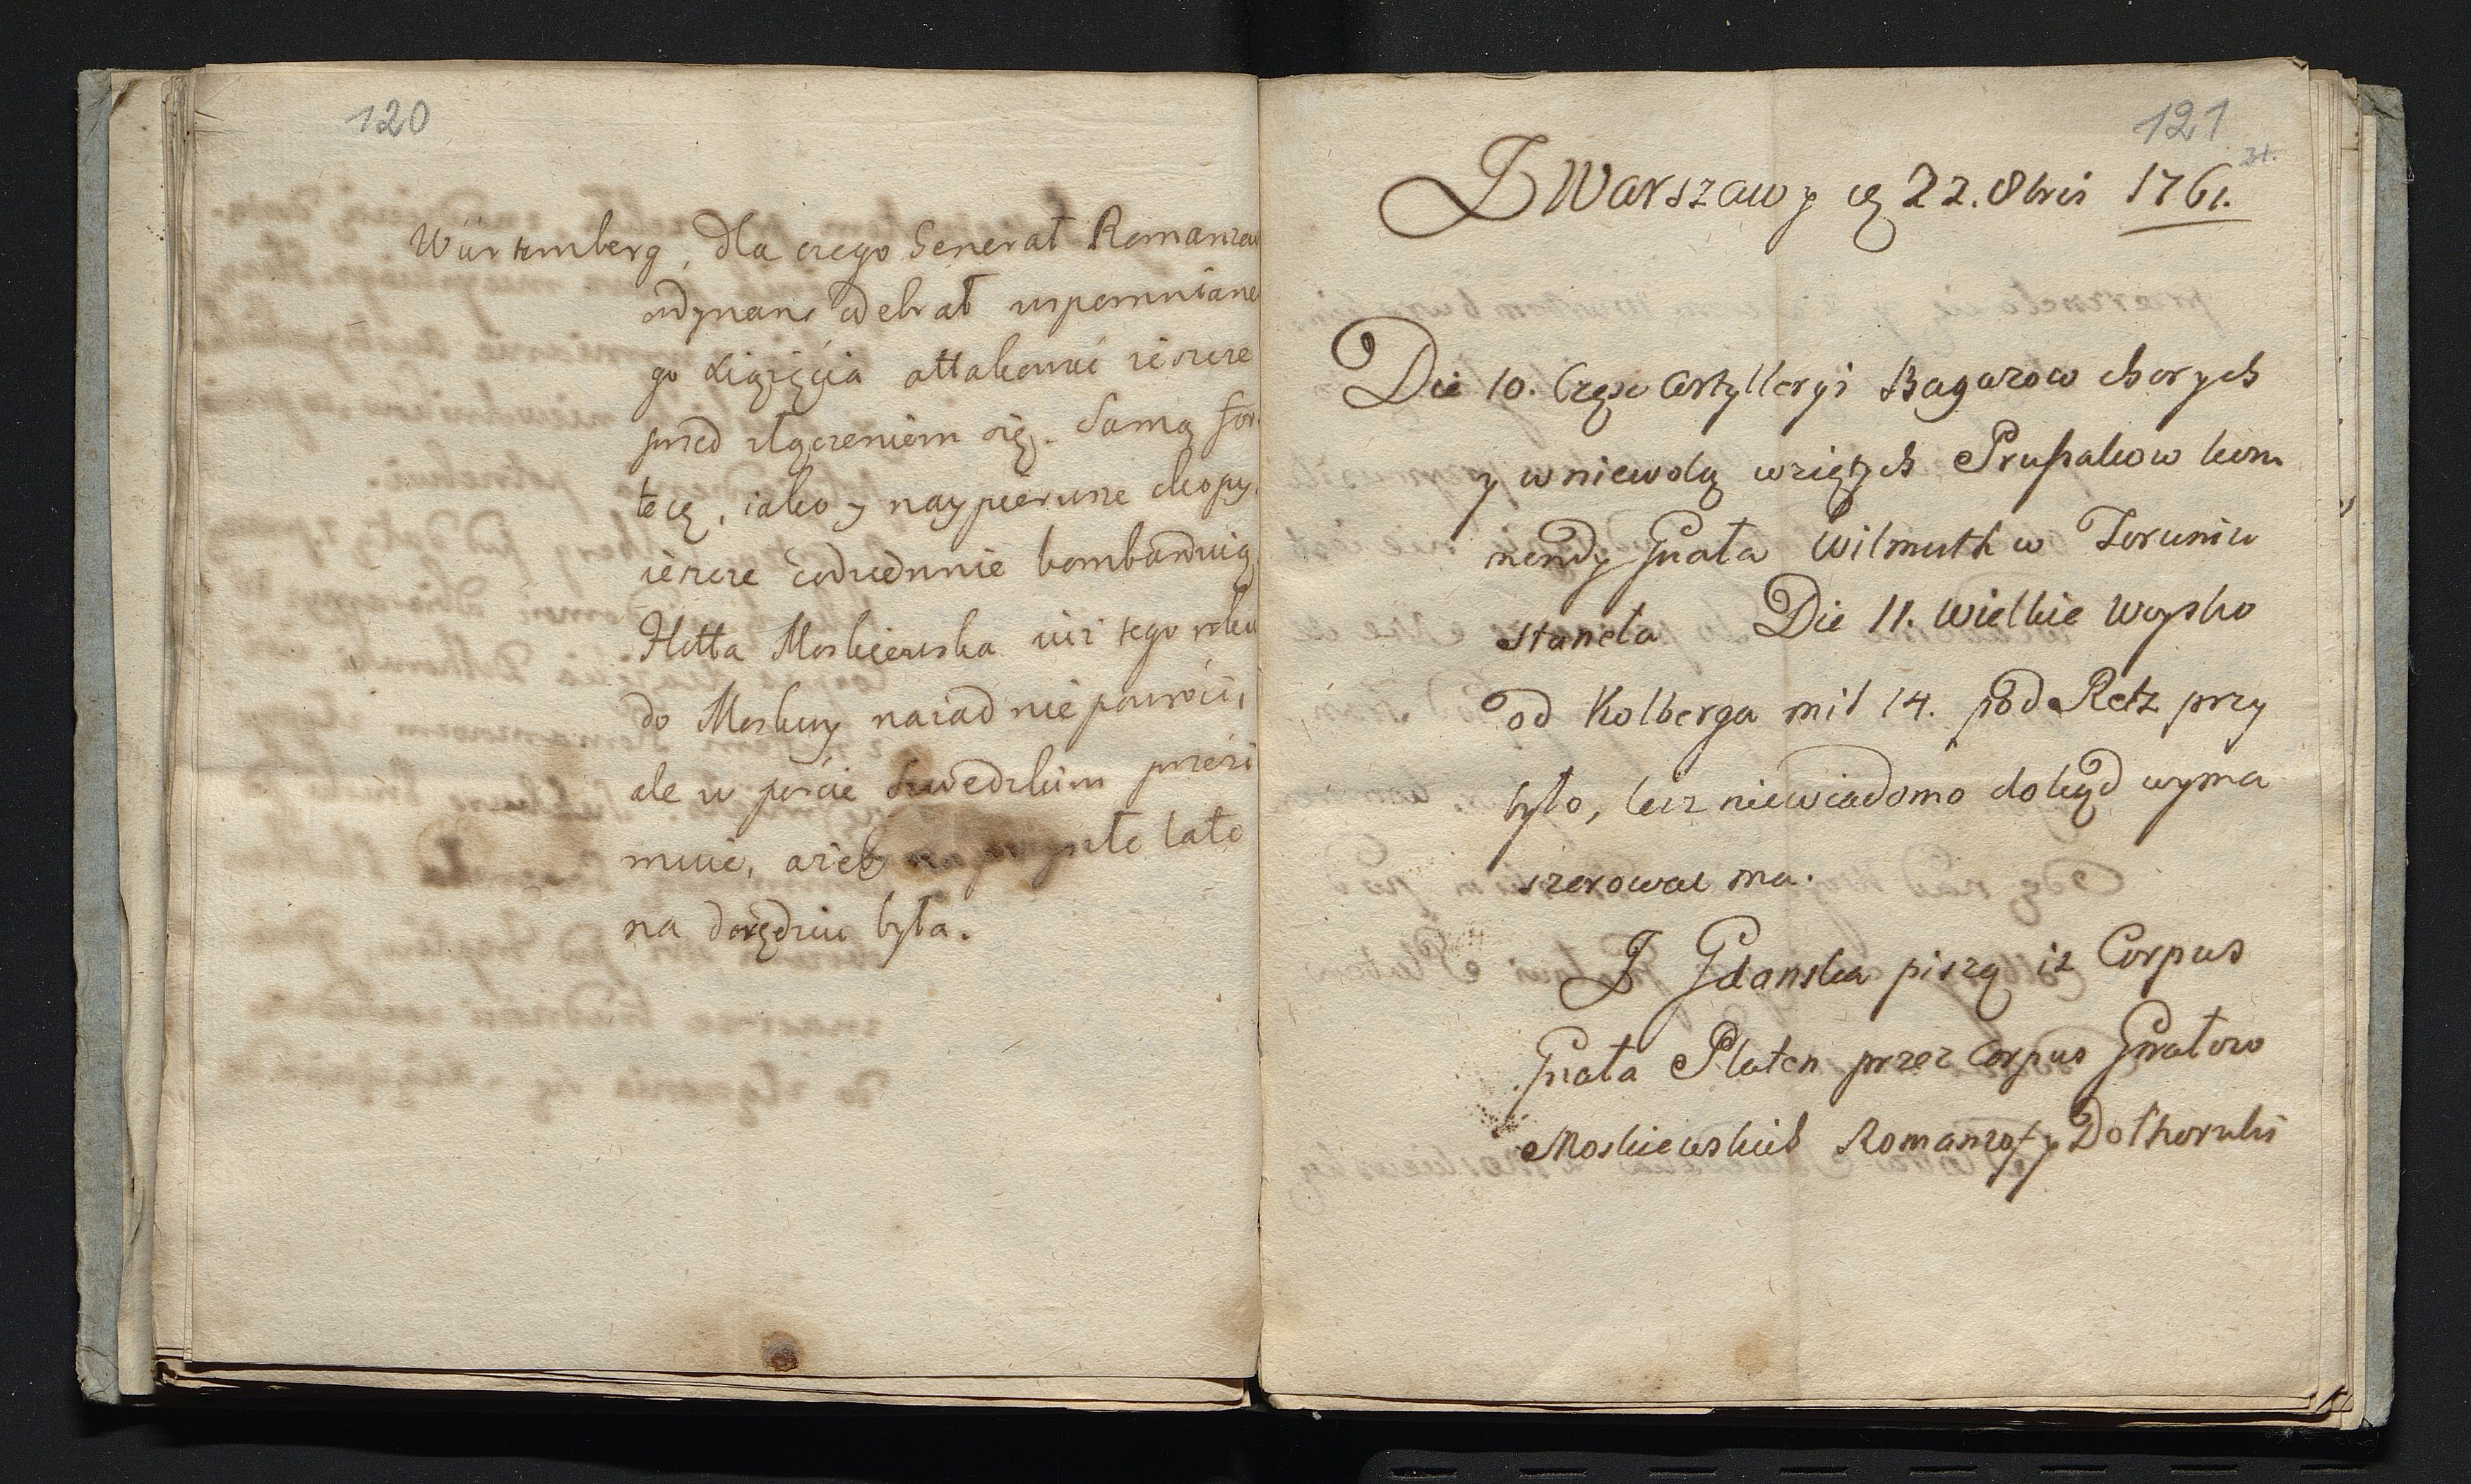 120
Würtemberg, dla czego Generał Romanzow
ordynans odebrał wspomniane
go Xiążęcia attakować ieszcze
przed złączeniem się. Samą for
tecę, iako y naypierwsze okopy,
ieszcze codziennie bombarduią
Flotta Moskiewska iuż tego roku
do Moskwy nazad nie powróci,
ale w porcie Szwedzkim przezi
muie, ażeby na przyszłe lato
na dorędziu była.
121
31.
Z Warszawy d 22. 8bris 1761.
Die 10. Częsc Artylleryi Bagazow chorych
y w niewolą wziętych Prusakow kom
mendy Gnała Wilmuth w Toruniu
staneła Die 11. Wielkie Woysko
od Kolberga mil 14. pod Retz przy
było, lecz niewiadomo dokąd wyma
szerowac ma.
Z Gdanska piszą iz Corpus
Gnała Platen przez Corpus Gnałow
Moskiewskich Romanzof y Dolhoruki